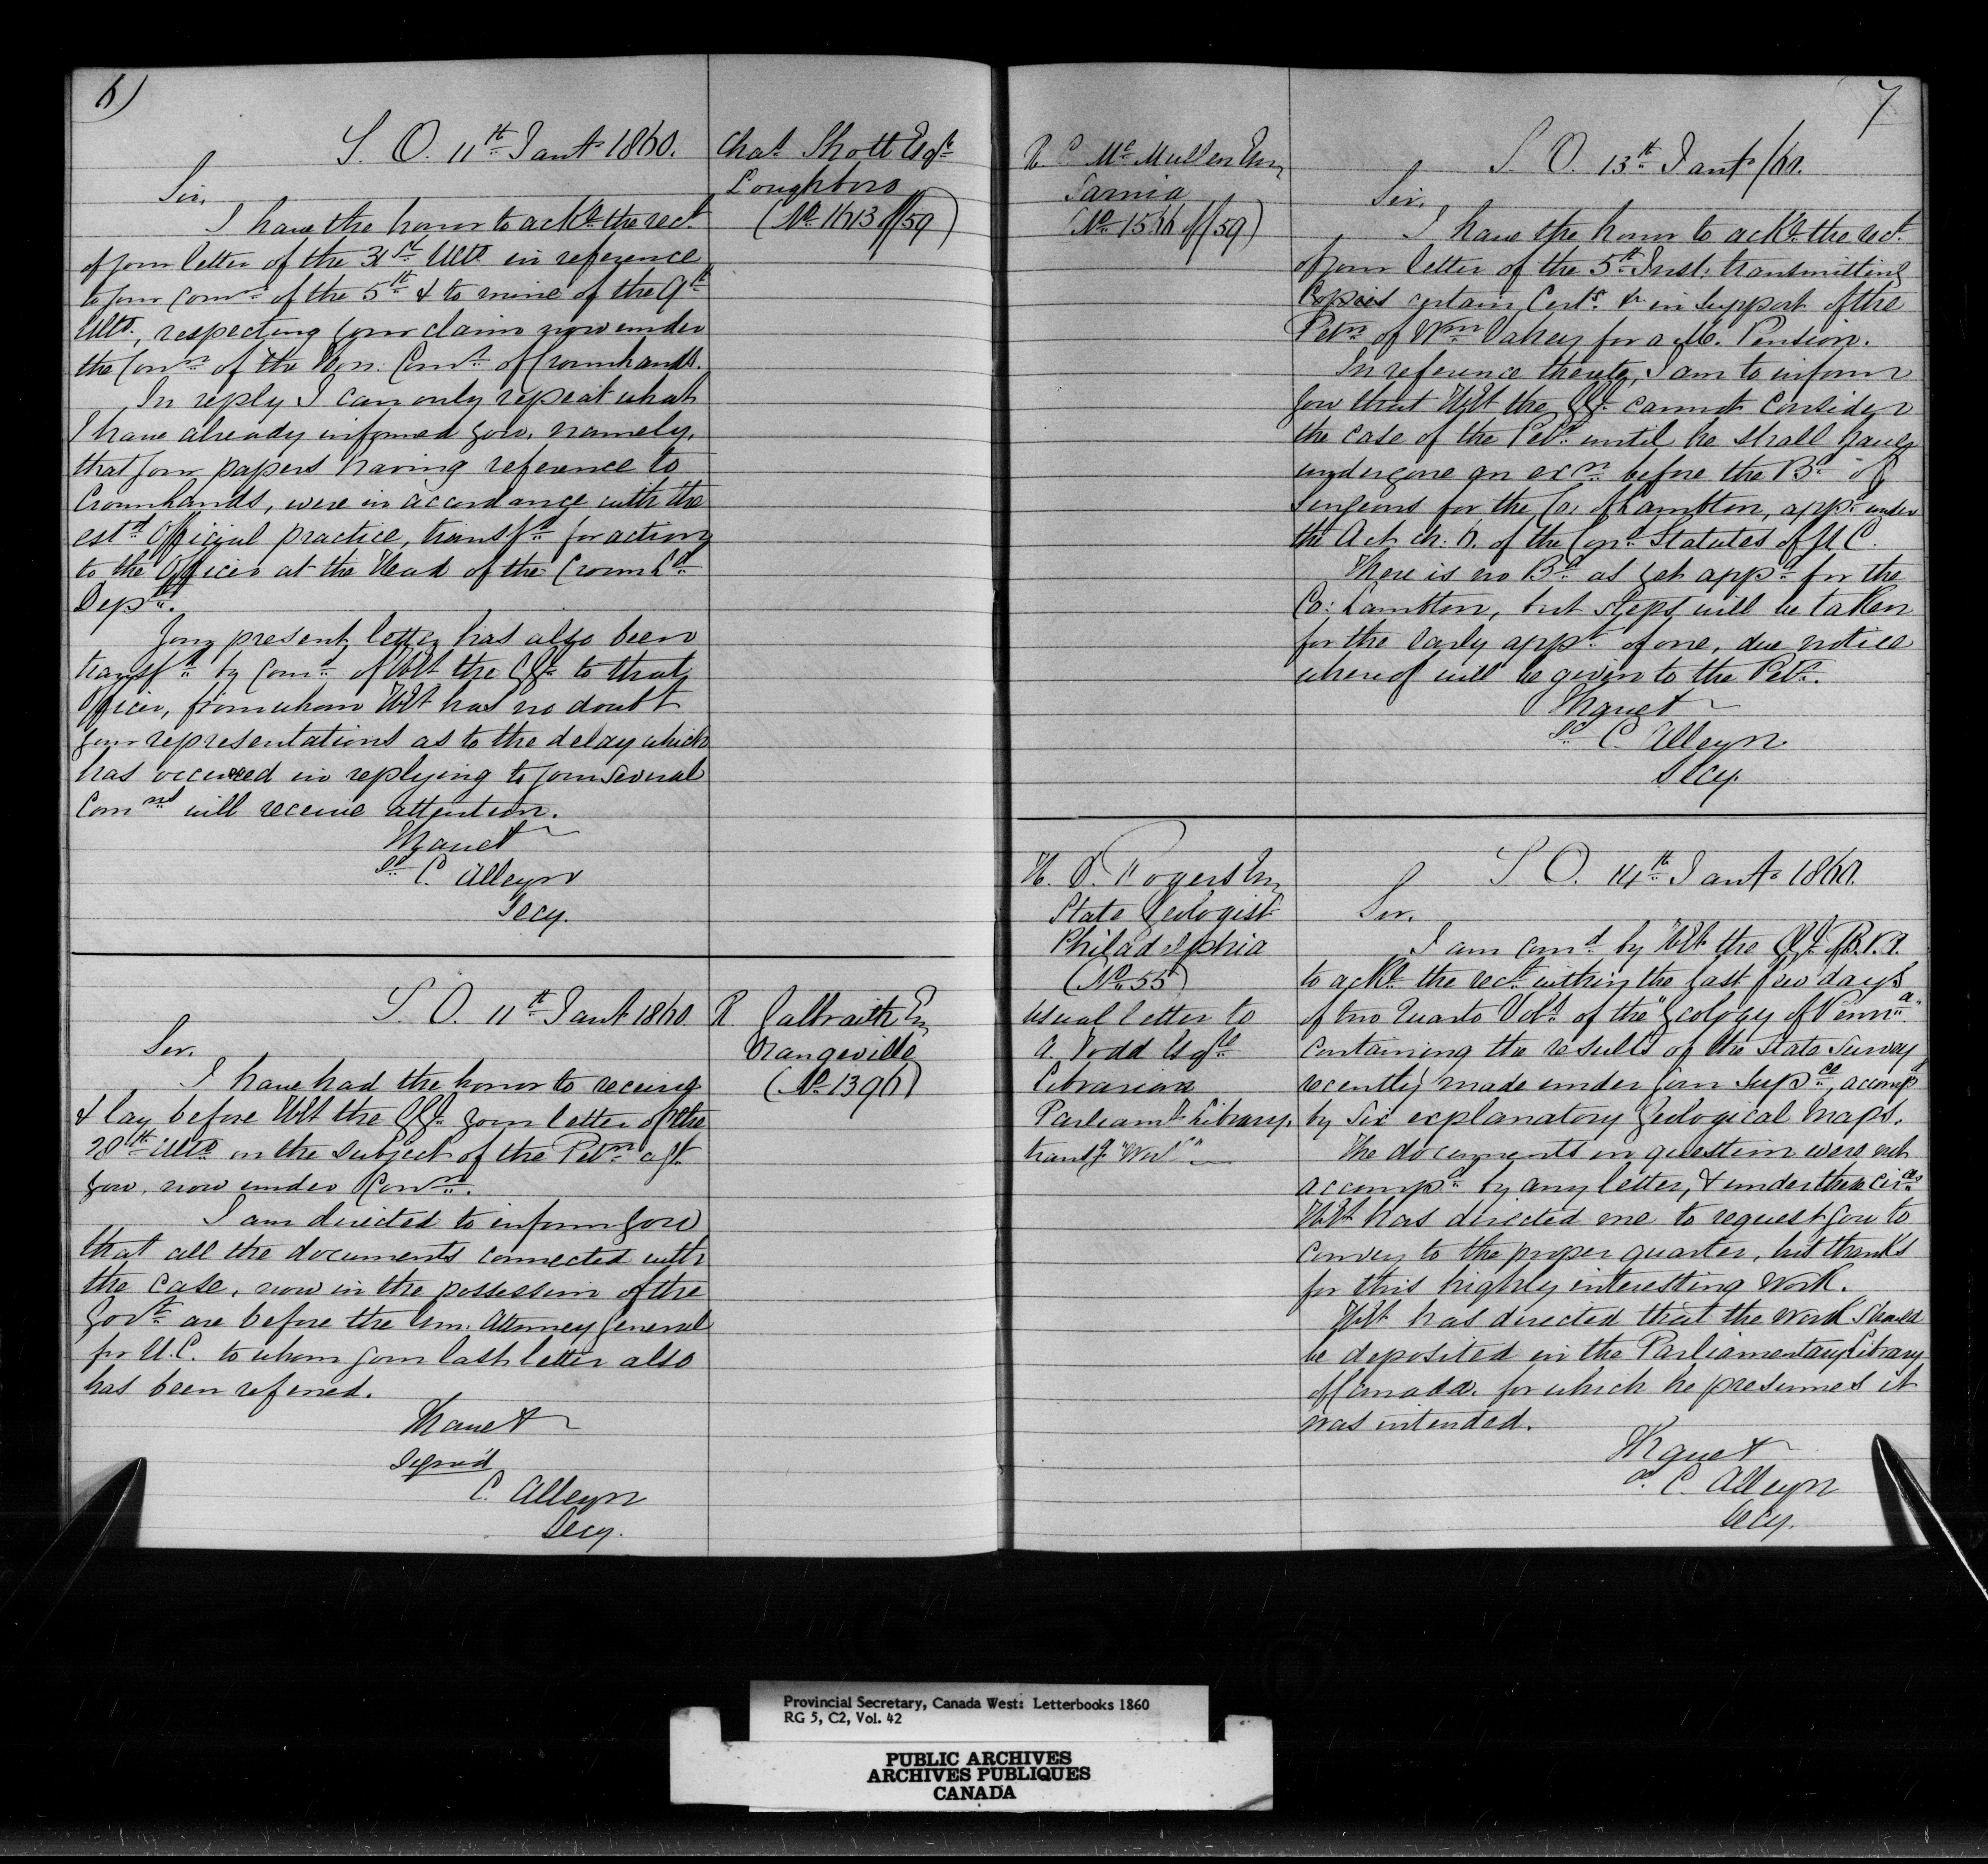 6)
S. O. 11th Jany 1860.
Sir,
I have the honor to ackE the rect
of your letter of the 31st Ulto in reference
to your comn of the 5th & to mine of the 9th
Ulto, respecting your claim now under
the Conn of the Hon. Comr of Crownlands.
In reply I can only repeat what
I have already informed you, namely,
that your papers having reference to
Crownlands, were in accordance with the
estd Official practice, transfd for action
to the Officer at the Head of the Crown Ld
Dept.
Your present letter has also been
transfd by comd of HEt the GG. to that
Officer, from whom HEt has no doubt
your representations as to the delay which
has occurred in replying to your several
Comns will receive attention.
I have &
Sd C. Alleyn
Secy.
Chas Shott Esqre
Loughboro
(No 1613 of /59)
S. O. 11th Jany 1860.
Sir.
I have had the honor to receive
& lay before HEt the GG. your letter of the
28th Ulto on the subject of the Petn agt
you, now under Conn.
I am directed to inform you
that all the documents connected with
the case, now in the possession of the
Govt are before the Hon. Attorney General
for U.C. to whom your last letter also
has been referred.
I have &
Signed
C. Alleyn
Secy.
R. Galbraith Esq
Orangeville
(No 1396)
7
R. C. McMullen Esq
Sarnia
(No 1566 of /59)
S. O. 13th Jany /60.
Sir.
I have the honor to ackE the rect
of your letter of the 5th Inst: transmitting
Copies certain Certs &c in support of the
Petn of Wm Oakey for a M. Pension.
In reference thereto, I am to inform
you that HEt the GG. cannot consider
the case of the Petr until he shall have
undergone an exn before the Bd of
Surgeons for the Co: of Lambton, appd under
the Act ch. 6. of the Cond Statutes of U C.
There is no Bd as yet appd for the
Co: Lambton, but steps will be taken
for the early appt of one, due notice
whereof will be given to the Petr.
I have &
Sd C. Alleyn
Secy.
H. D. Rogers Esq
State Geologist
Philadelphia
(No 55)
Usual letter to
A. Todd Esqre
Librarian
Parliamt Library,
transg "Work"
S. O. 14th Jany 1860.
Sir.
I am comd by HEt the GG. of B.N.A.
to ackE the rect within the last few days
of two Quarto Vols of the "Geology of Penna"
containing the results of the State Survey
recently made under your Supce, accompd
by six explanatory Geological maps.
The documents in question were not
accompd by any letter, & under these circes
HEt has directed me to request you to
convey to the proper quarter, his thanks
for this highly interesting work.
HEt has directed that the work should
be deposited in the Parliamentary Library
of Canada, for which he presumes it
was intended.
I have &
Sd. C. Alleyn
Secy.
Provincial Secretary, Canada West: Letterbooks 1860
RG 5, C2, Vol. 42
PUBLIC ARCHIVES
ARCHIVES PUBLIQUES
CANADA